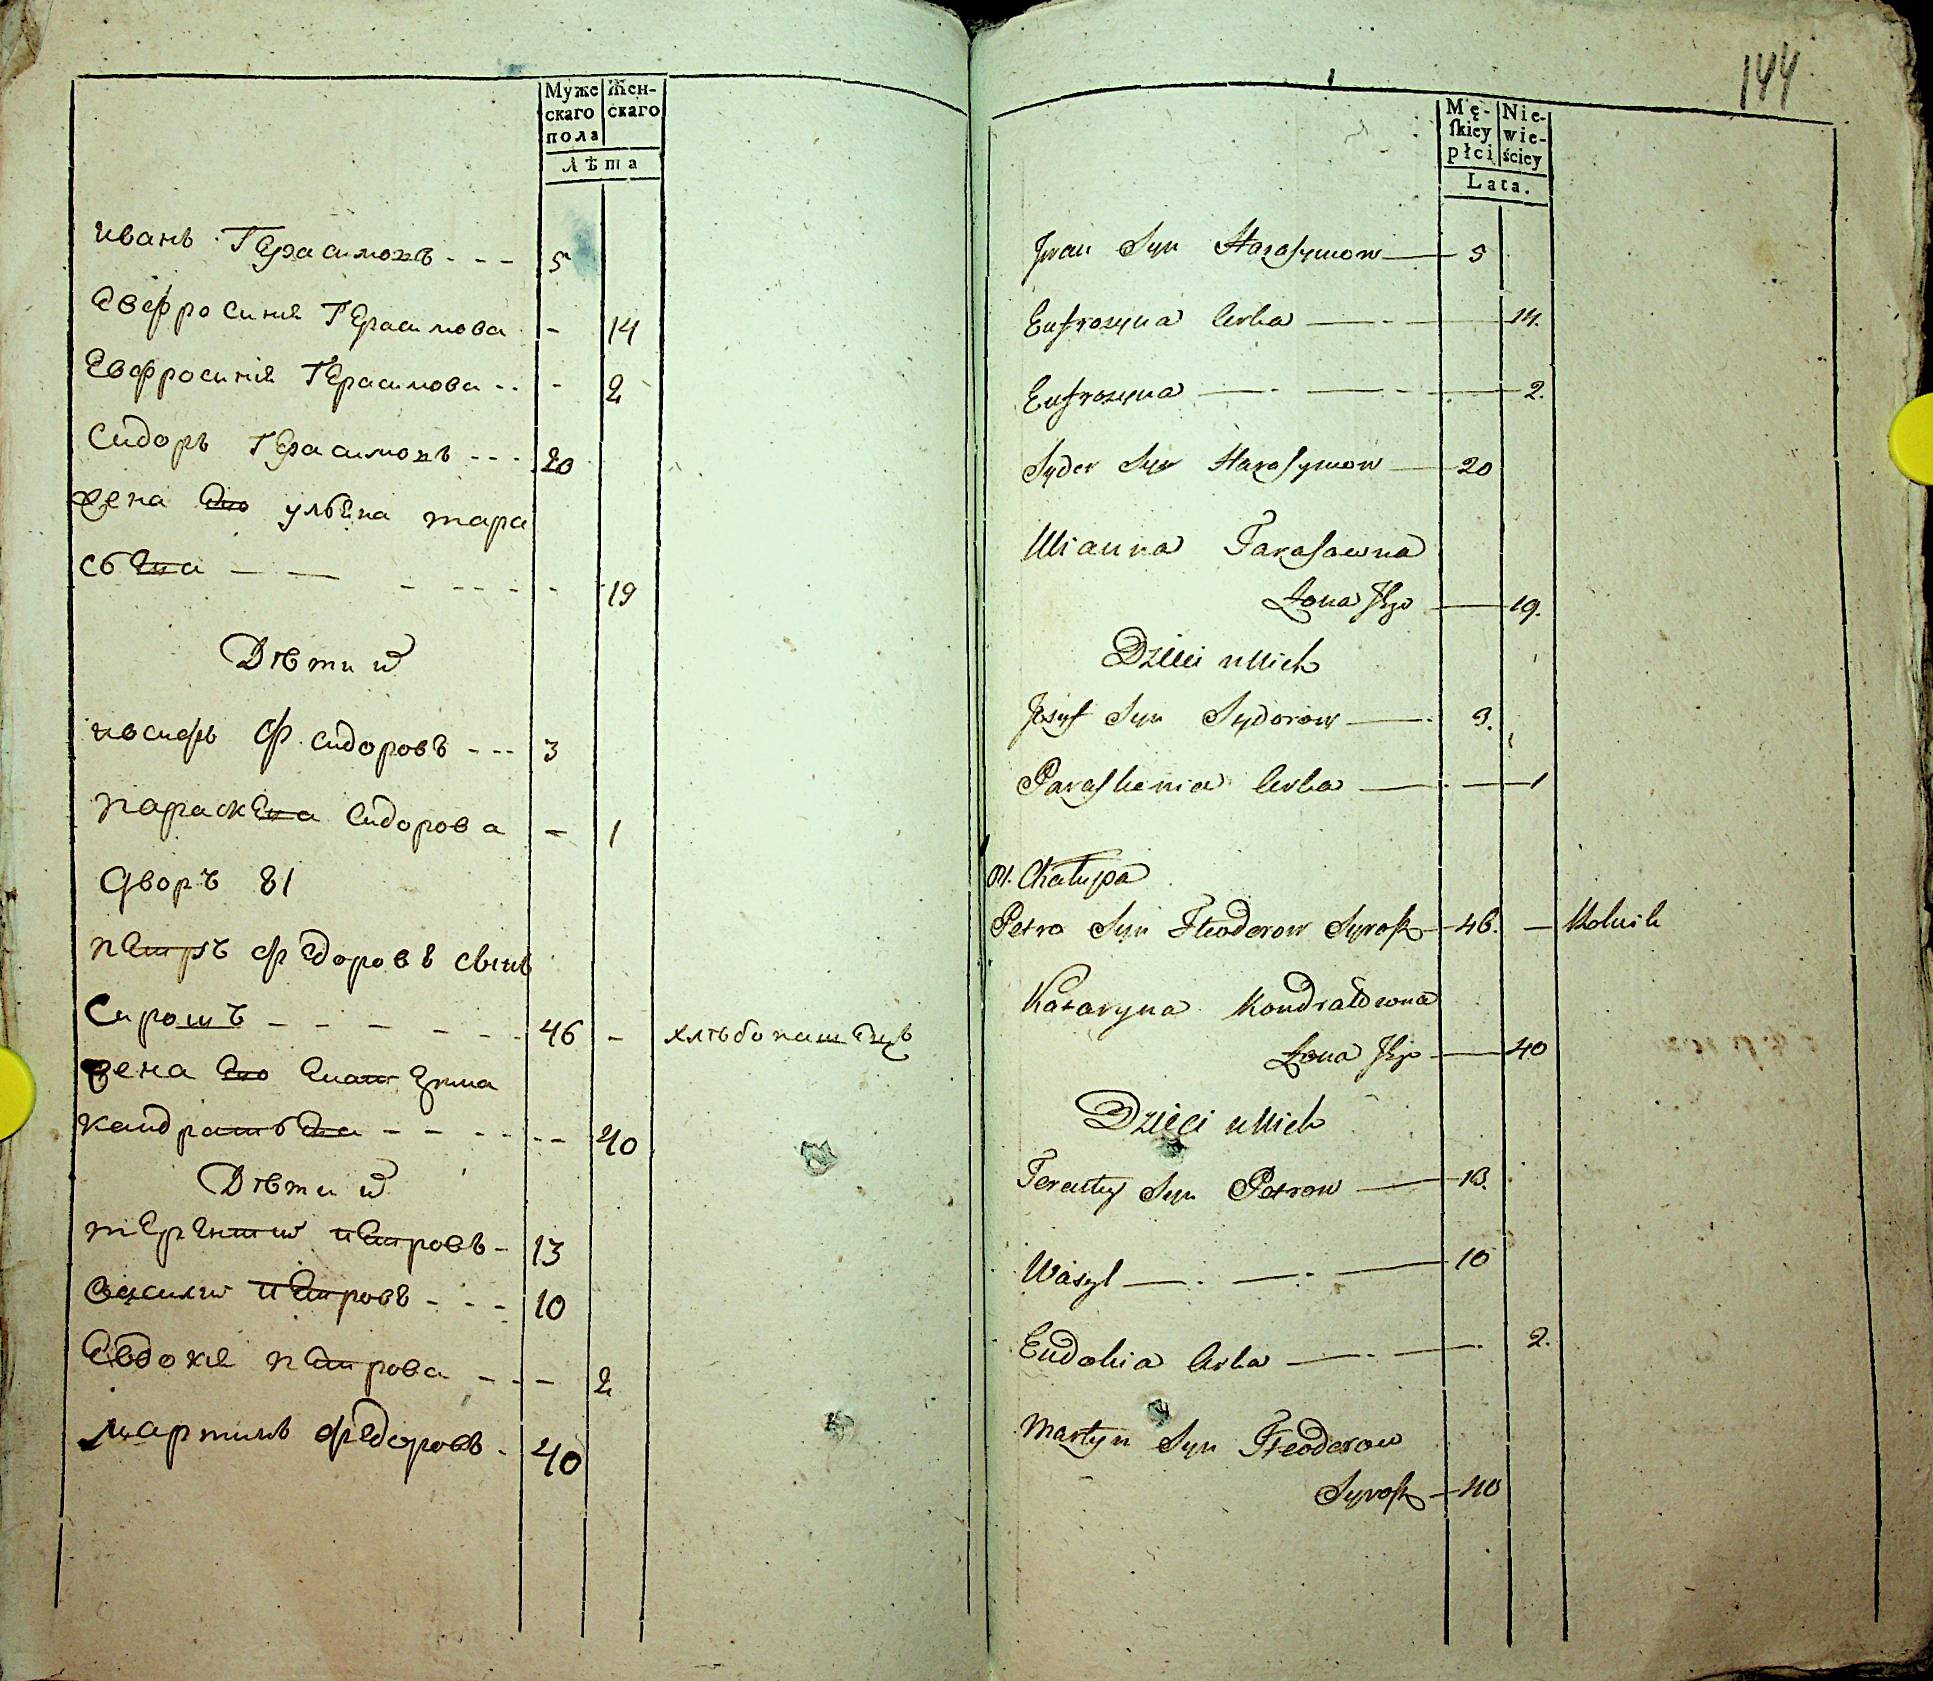 Муже
скаго
пола
Жен-
скаго
Лѣта
иванъ Герасимовъ - - - 5
Евфросиния Герасимова - 14
Евфросиния Герасимова - - - 2
Сидоръ Герасимовъ - - - 20
жена Ево ульяна тара
сьева - - - - - - - 19
Дѣти их
иосифъ сидоровъ - - - 3
параскева Сидорова - 1
дворъ 81
петръ федоровъ сынъ
Сиротъ - - - - - - 46 - хлѣбопашецъ
жена Ево Екатерина
кандратьева - - - - - - 40
Дѣти их
терентий петровъ - 13
василий петровъ - - - 10
Евдокия петрова - - - 2
мартинъ федоровъ - 40
144
Mę-
skiey
płci
Nie-
wie-
ściey
Lata.
Jwan Syn Harasymow — 5
Eufrozyna Corka — 14.
Eufrozyna — 2.
Syder Syn Harasymow — 20
Ulianna Tarasowna
Żona Jego — 19.
Dzieci u Nich
Jozef Syn Sydorow — 3.
Paraskewia Corka — 1
81. Chałupa
Petro Syn Fteodorow Syrosz — 46. — Rolnik
Katarzyna Kondratowna
Żona Jego — 40
Dzieci u Nich
Terenty Syn Petrow — 13.
Wasyl — 10
Eudokia Corka — 2.
Martyn Syn Fteodorow
Syrosz — 40